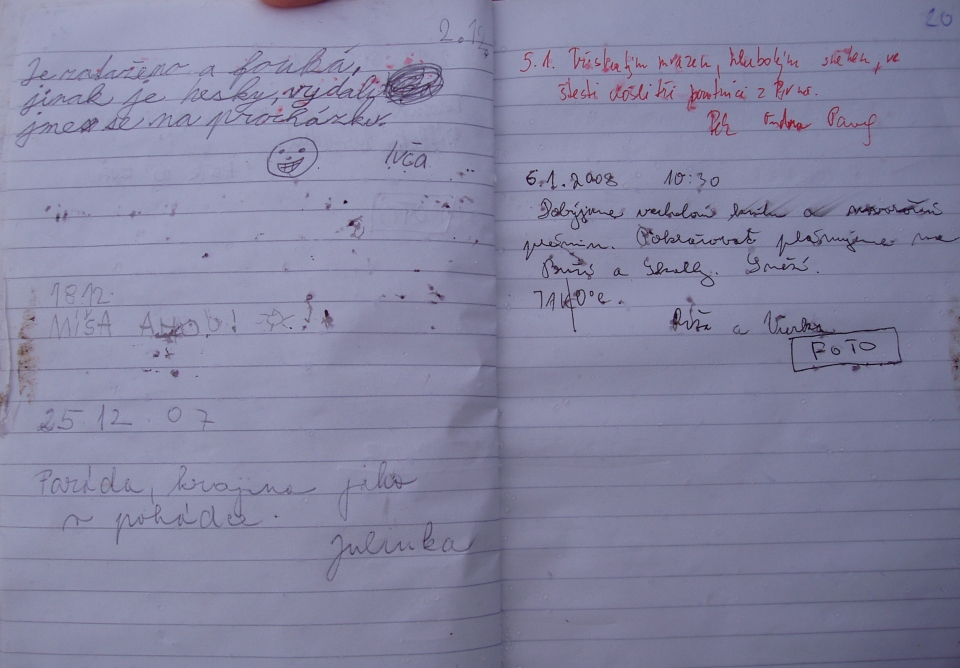 2.12.
Je zataženo a fouká,
jinak je hezky, vydali
jmex se na procházku.
Ivča
18.12.
MÍŠA AHOJ!
25.12.07
Paráda, krajina jako
v pohádce.
Julinka
20
5.1. Třeskutým mrazem, hlubokým sněhem, ve
štěstí došli tři poutníci z Brna.
Petr Pavel
6.1.2008 10:30
Dobýváme vrcholovou knihu a
. Pokračovat plánujeme na
a Skalky. Sněží.
0°C.
Ríša a Vierka
FOTO